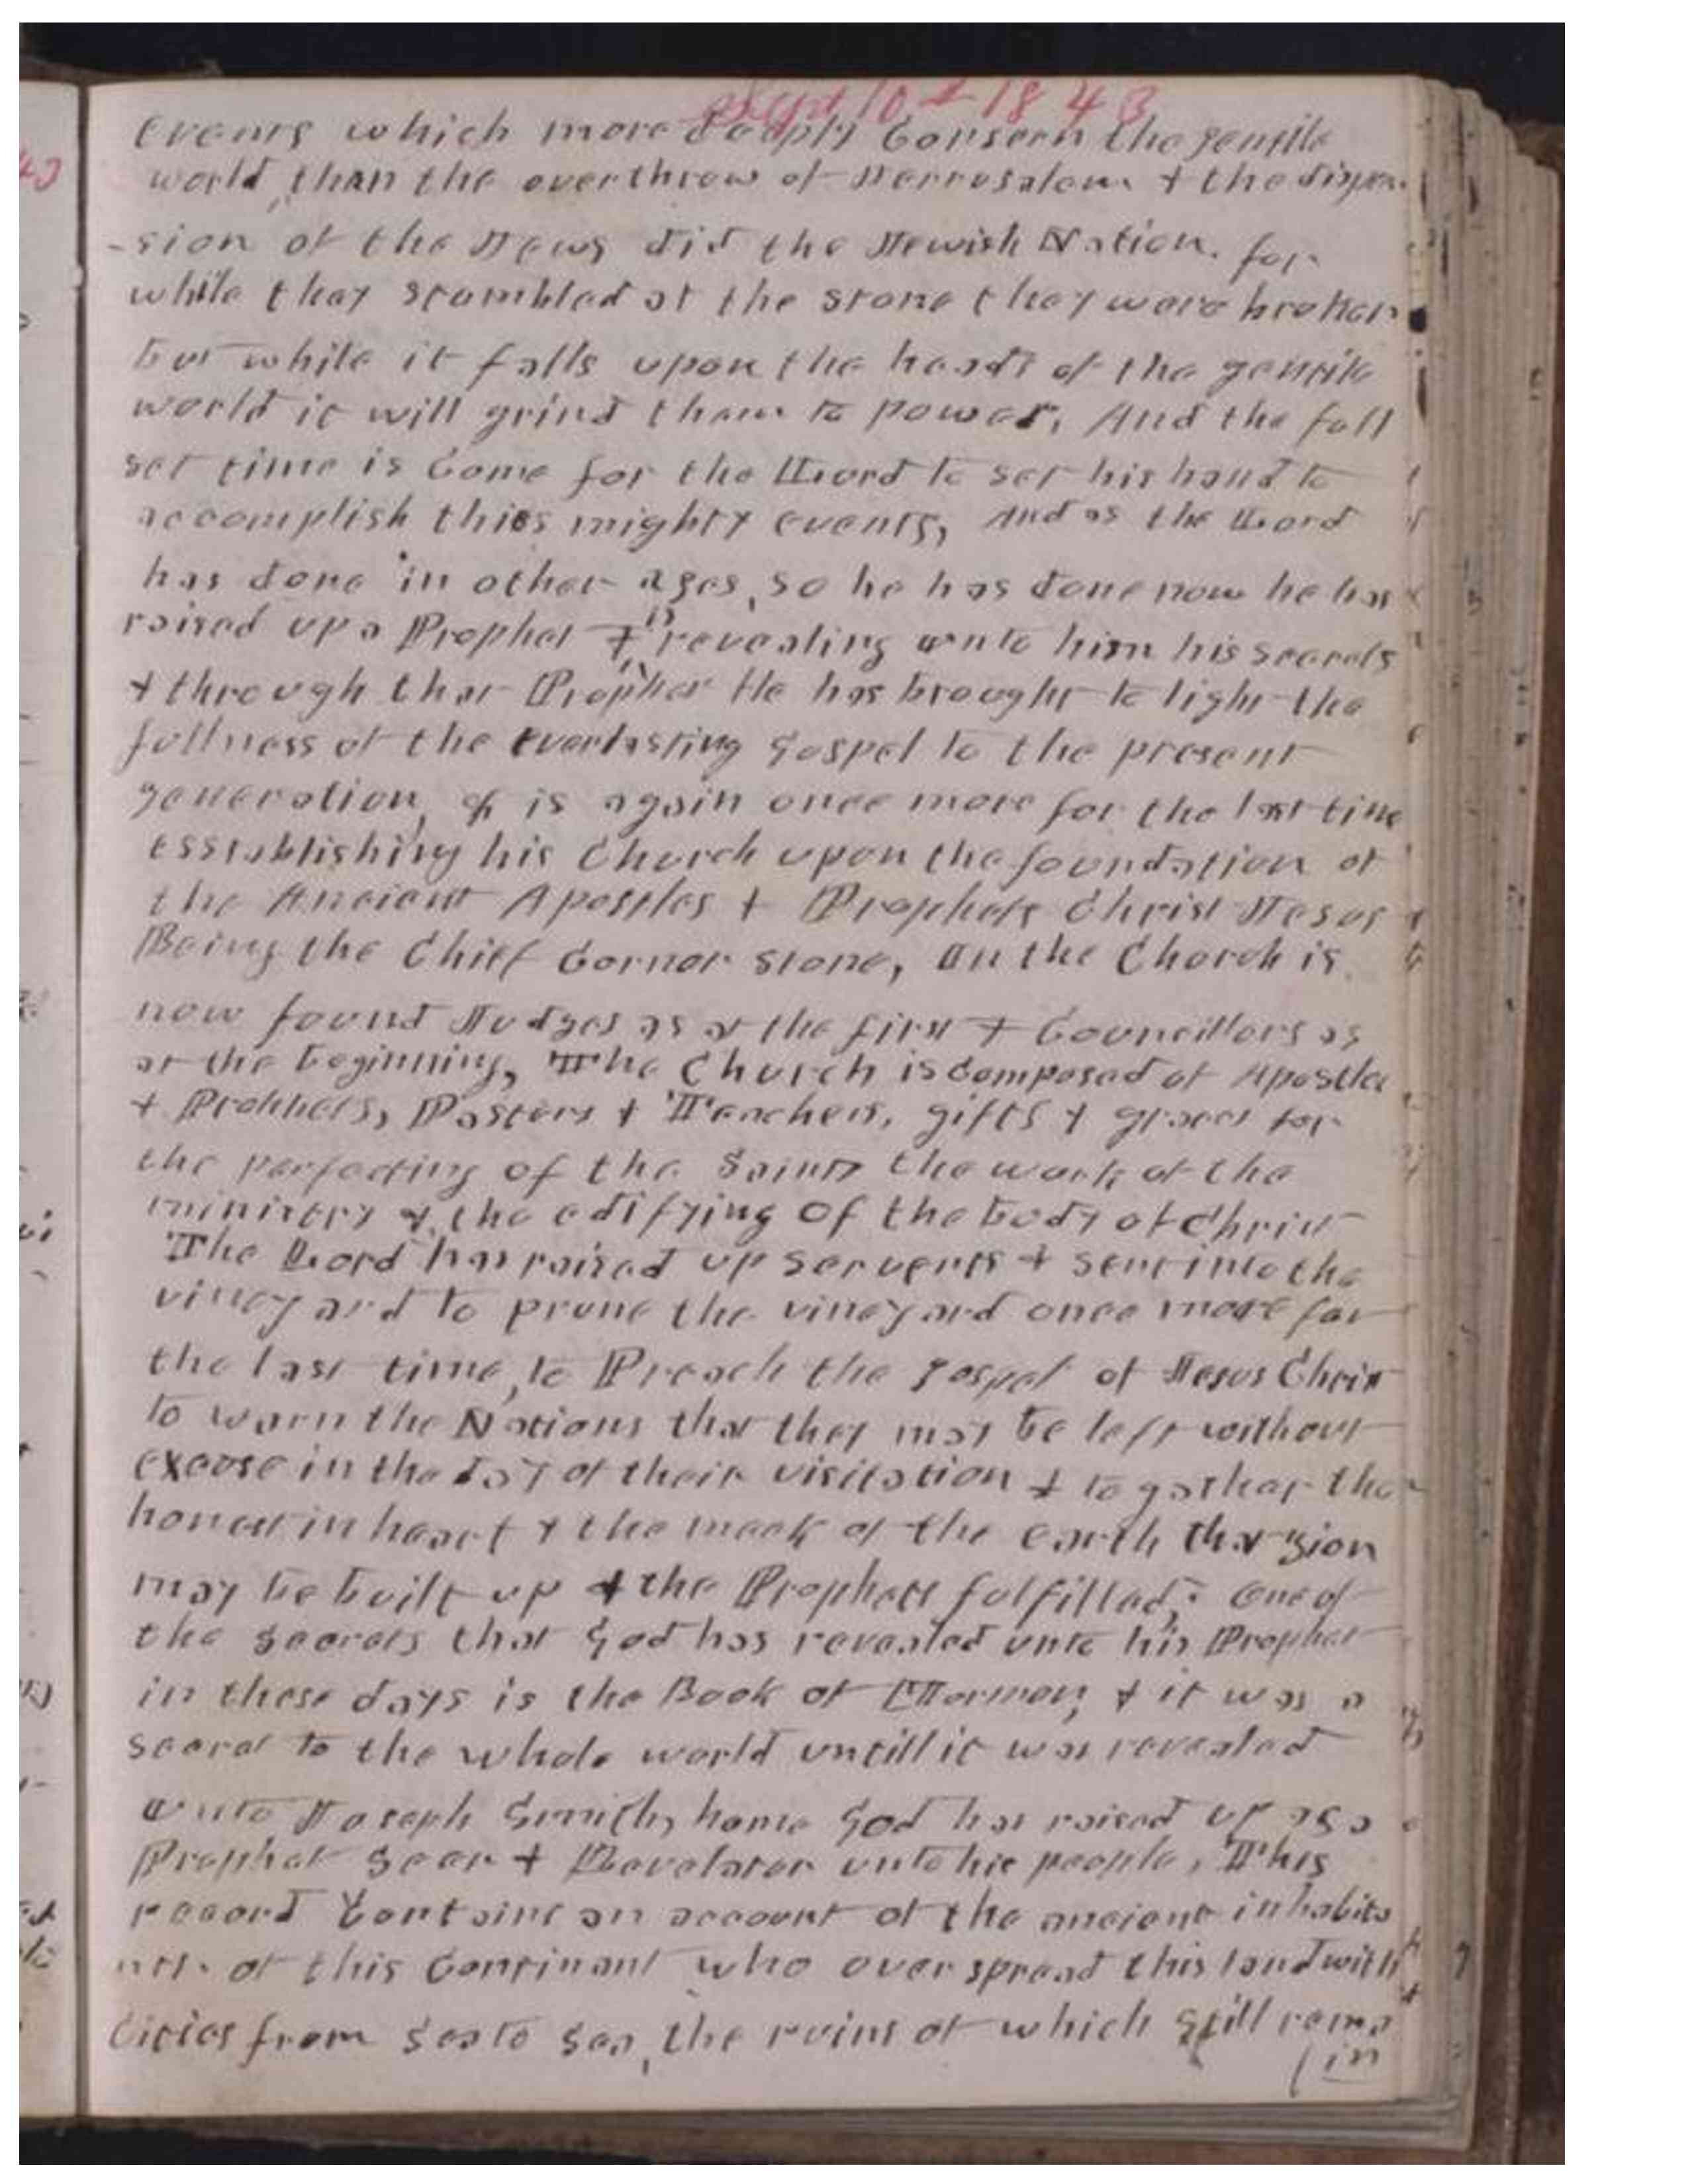 Sept 10th 1843
events which more deeply Conseern the gentile
world, than the overthrow of Jerrusalem & the disper
-sion of the Jews did the Jewish Nation. for
while they stumbled at the stone they were broken
but while it falls upon the heads of the gentile
world it will grind them to power, And the full
set time is Come for the Lord to set his hand to
accomplish thies mighty events, And as the Lord
has done in other ages, so he has done now he has
raised up a Prophet & revealing unto him his secrets
& through that Prophet He has brought to light the
fullness of the everlasting gospel to the present
generation, & is again once more for the last time
esstablishing his Church upon the foundation of
the Ancient Apostles & Prophets Christ Jesus
Being the Chief Corner stone, In the Church is
now found Judges as at the first & Councillors as
at the beginning, The Church is Composed of Apostles
& Prohhets, Pastors & Teachers, gifts & graces for
the perfecting of the Saints the work of the
ministery & the edifying of the body of Christ
The Lord has raised up servents & sent into the
vineyard to prune the vineyard once more for
the last time, to Preach the gospel of Jesus Christ
to warn the Nations that they may be left without
excuse in the day of their visitation & to gather the
honest in heart & the meek of the earth that zion
may be built up & the Prophets fulfilled; One of
the secrets that God has revealed unto his Prophet
in these days is the Book of Mormon, & it was a
secret to the whole world untill it was revealed
unto Joseph Smith, home God has raised up as a
Prophet Seer & Revelator unto his people, This
record Contains an account of the ancient inhabita
nts of this Continant who over spread this land with
Cities from Sea to Sea, the ruins of which still rema
(in